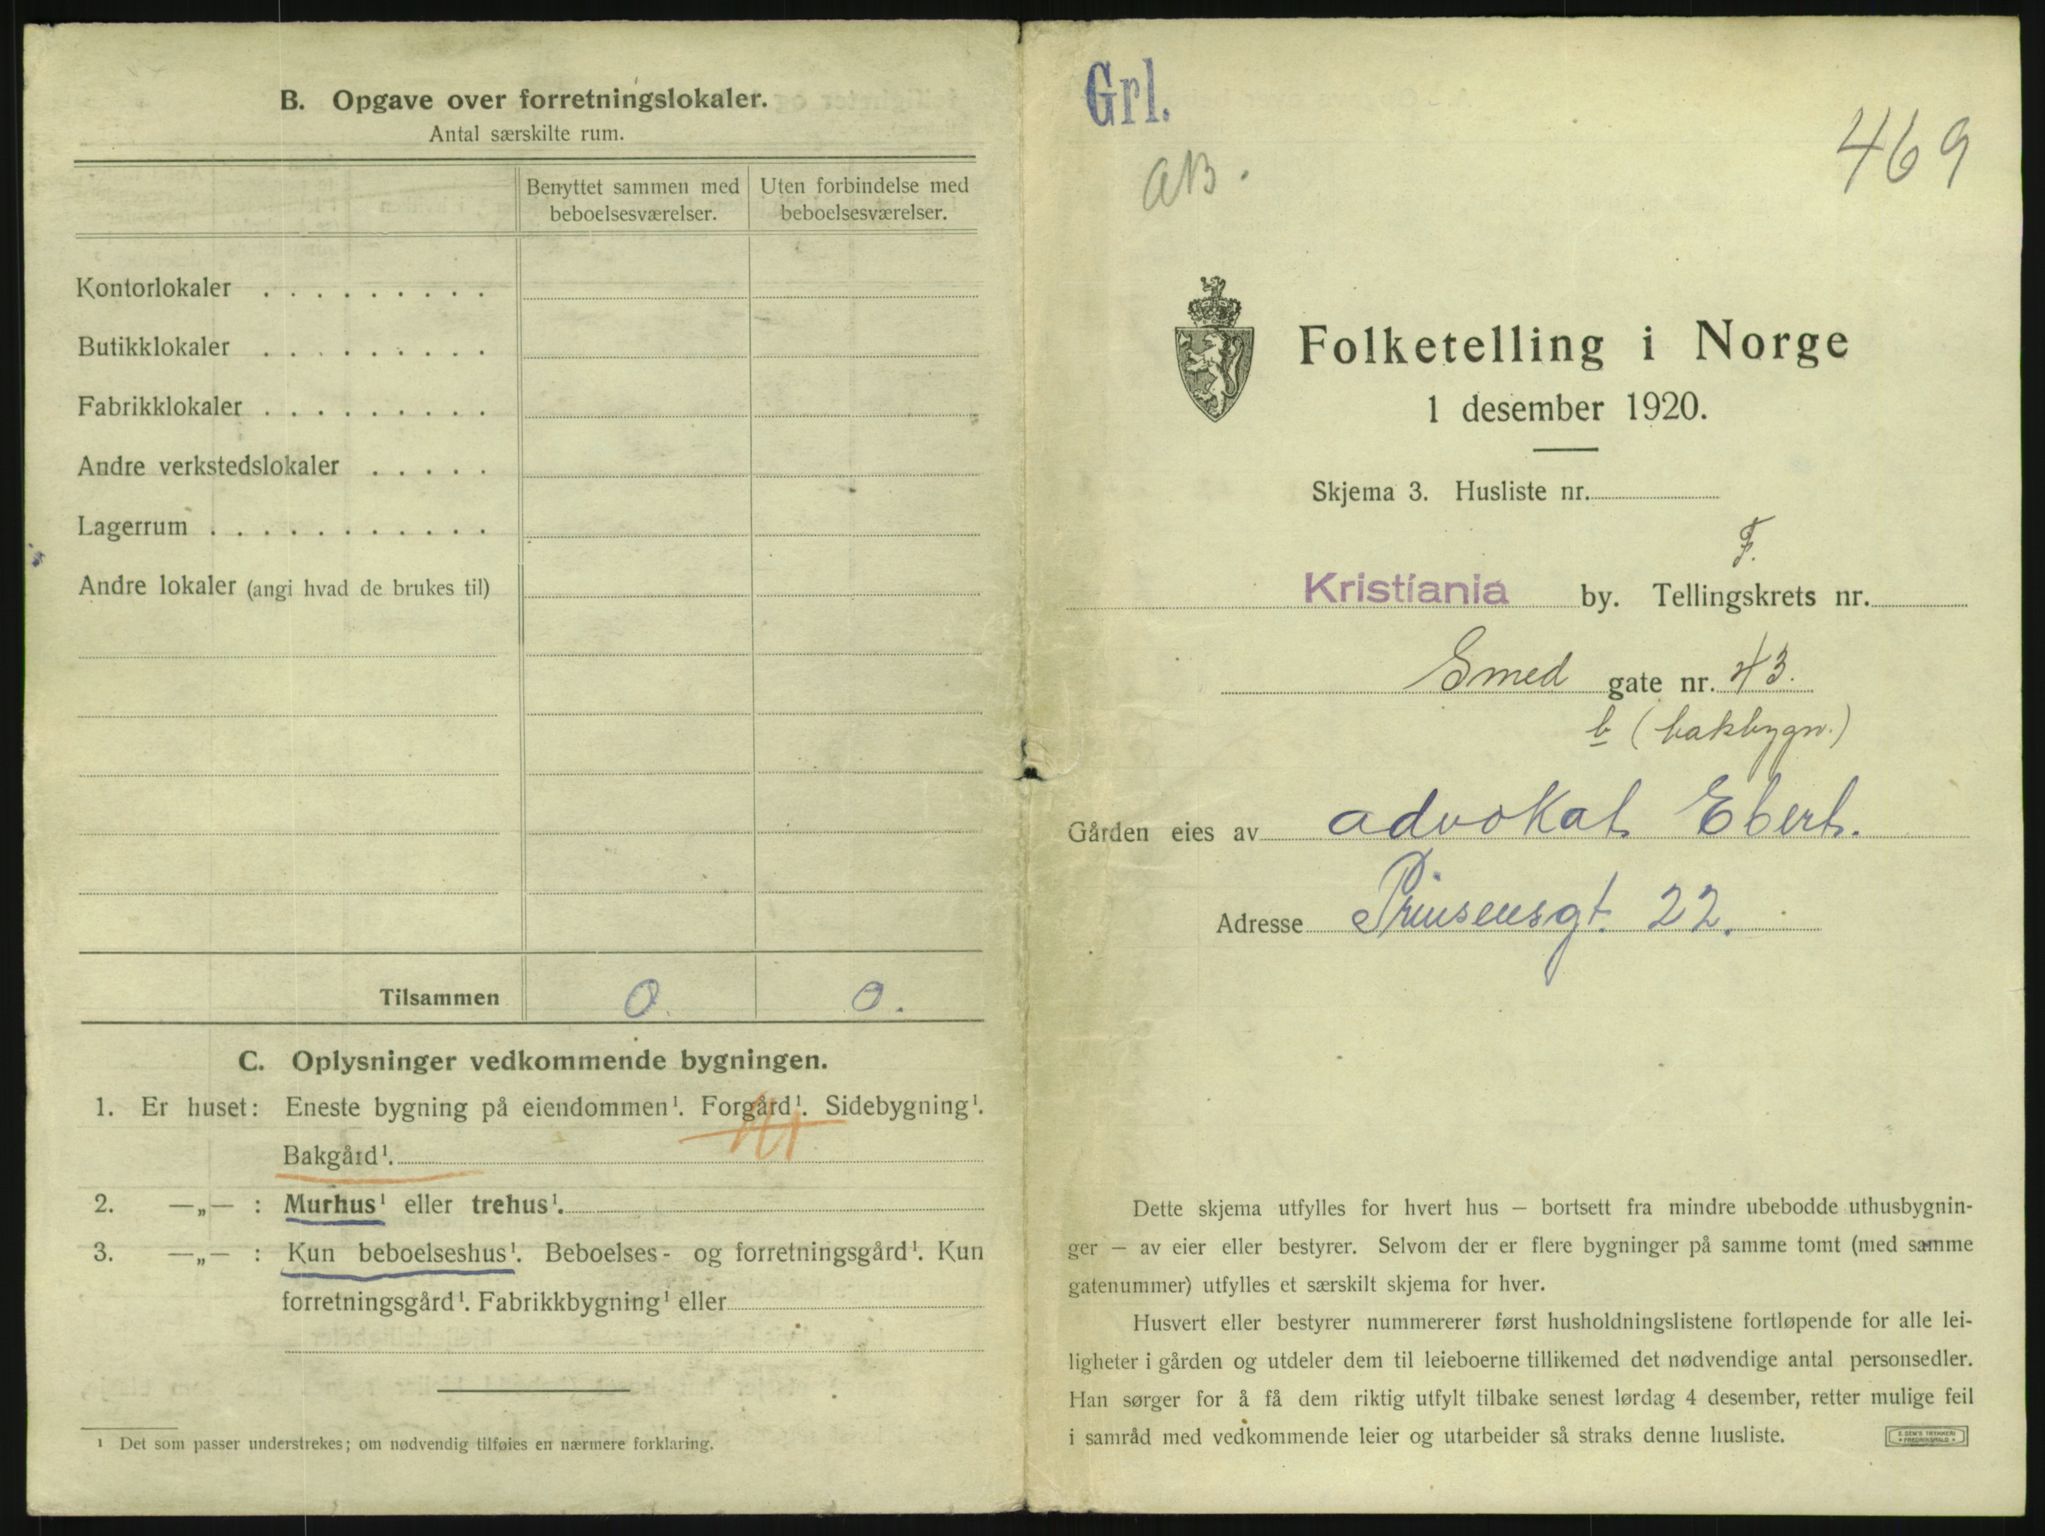 B. Opgave over forretningslokaler.
Antal særskilte rum.
Benyttet sammen med beboelsesværelser.
Uten forbindelse med beboelsesværelser.
Kontorlokaler . . . . . . . . .
Butikklokaler . . . . . . . . .
Fabrikklokaler . . . . . . . . .
Andre verkstedslokaler . . . . .
Lagerrum . . . . . . . . . . .
Andre lokaler (angi hvad de brukes til)
Tilsammen 0. 0.
C. Oplysninger vedkommende bygningen.
1. Er huset: Eneste bygning på eiendommen¹. Forgård¹. Sidebygning¹.
Bakgård¹.
2. —„— : Murhus¹ eller trehus¹.
3. —„— : Kun beboelseshus¹. Beboelses- og forretningsgård¹. Kun
forretningsgård¹. Fabrikkbygning¹ eller
¹ Det som passer understrekes; om nødvendig tilføies en nærmere forklaring.
Grl.
469
AB.
Folketelling i Norge
1 desember 1920.
Skjema 3. Husliste nr.
F.
Kristiania by. Tellingskrets nr.
Smed gate nr. 43.
b (bakbygn.)
Gården eies av advokat Ebert.
Adresse Prinsensgt. 22.
Dette skjema utfylles for hvert hus – bortsett fra mindre ubebodde uthusbygnin-
ger – av eier eller bestyrer. Selvom der er flere bygninger på samme tomt (med samme
gatenummer) utfylles et særskilt skjema for hver.
Husvert eller bestyrer nummererer først husholdningslistene fortløpende for alle lei-
ligheter i gården og utdeler dem til leieboerne tillikemed det nødvendige antal personsedler.
Han sørger for å få dem riktig utfylt tilbake senest lørdag 4 desember, retter mulige feil
i samråd med vedkommende leier og utarbeider så straks denne husliste.